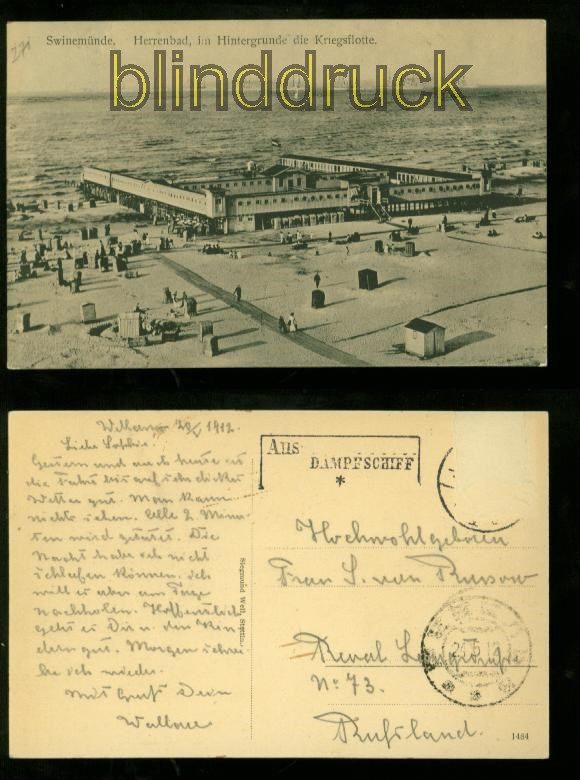 271
Swinemünde. Herrenbad, im Hintergrunde die Kriegsflotte.
blinddruck
1912.
Liebe Sophie.
Gestern und auch heute ist
die Fahrt bis auf sehr dickes
Wetter gut. Man kann
nichts sehen. Alle 2 Minu-
ten wird getutet. Die
Nacht habe ich nicht
schlafen können. ich
will es aber am Tage
nachholen. Hoffentlich
geht es Dir u. den Kin
dern gut. Morgen schrei
be ich wieder.
Mit Gruß Dein
Siegmund Weil, Stettin.
Aus
DAMPFSCHIFF
*
Hochwohlgeboren
Frau S. von Russow
Reval
No: 73.
Rußland.
1484